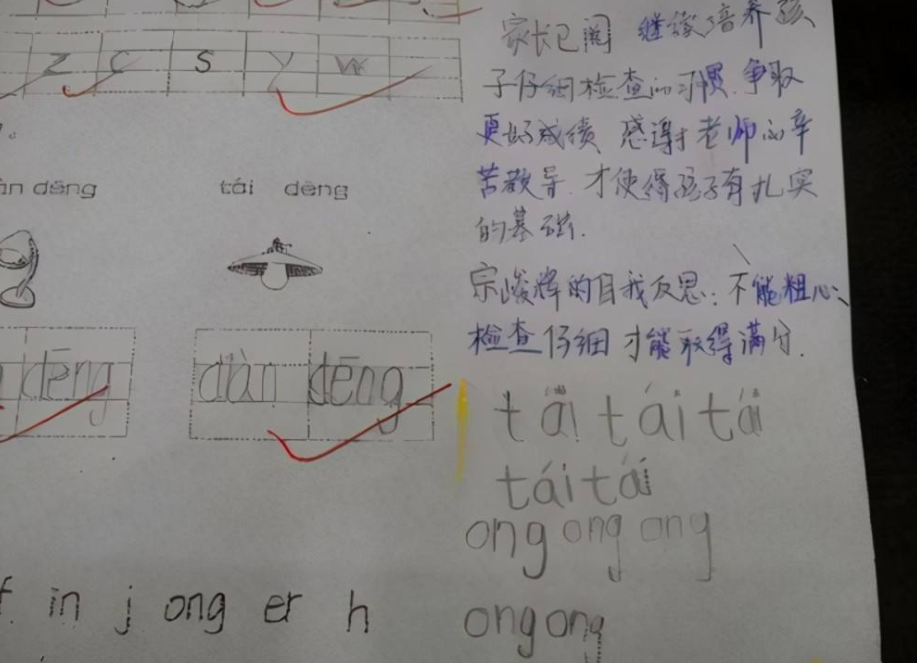 z c s y w
家长已阅 继续培养孩
子仔细检查的习惯.争取
更好成绩 感谢老师的辛
苦教导.才使得孩子有扎实
的基础.
àn dēng tái dēng
宗峻辉的自我反思:不能粗心、
检查仔细才能取得满分.
dēng dàn dēng
tái tái tái
tái tái
ong ong ong
f in j ong er h
ong ong